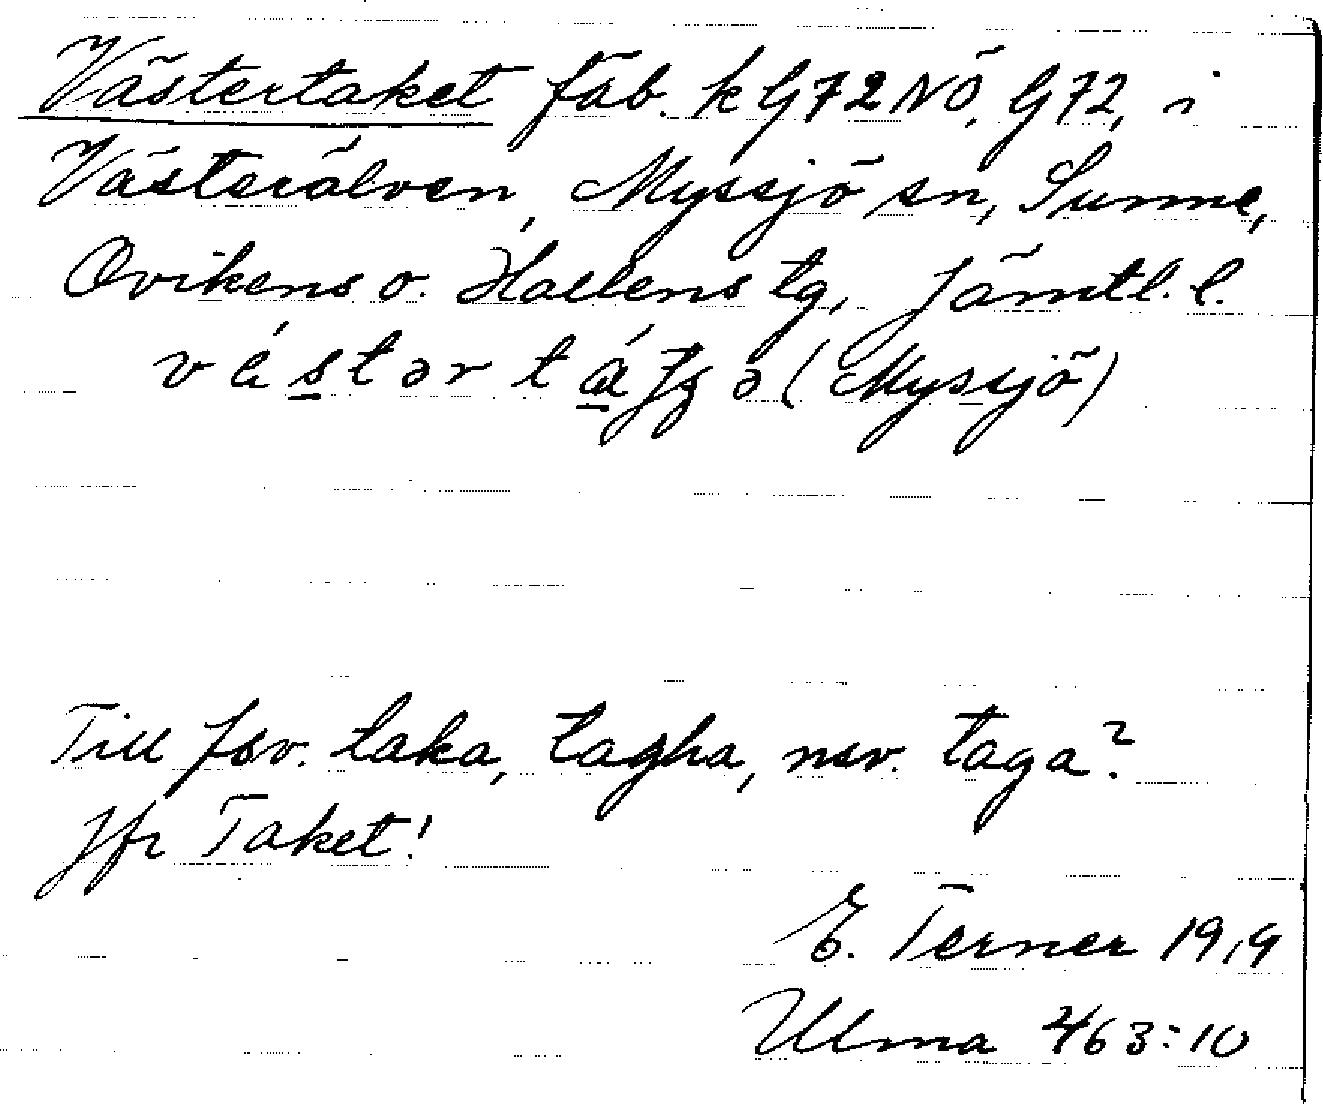 Västertaket fäb. k G72NÖ, G72, i
Västerålven, Myssjö sn, Sunne,
Ovikens o. Hallens tg, Jämtl. l.
(Myssjö)
Till fsv. taka, tagha, nsv. taga?
Jfr Taket!
E. Terner 1919
Ulma 463:10